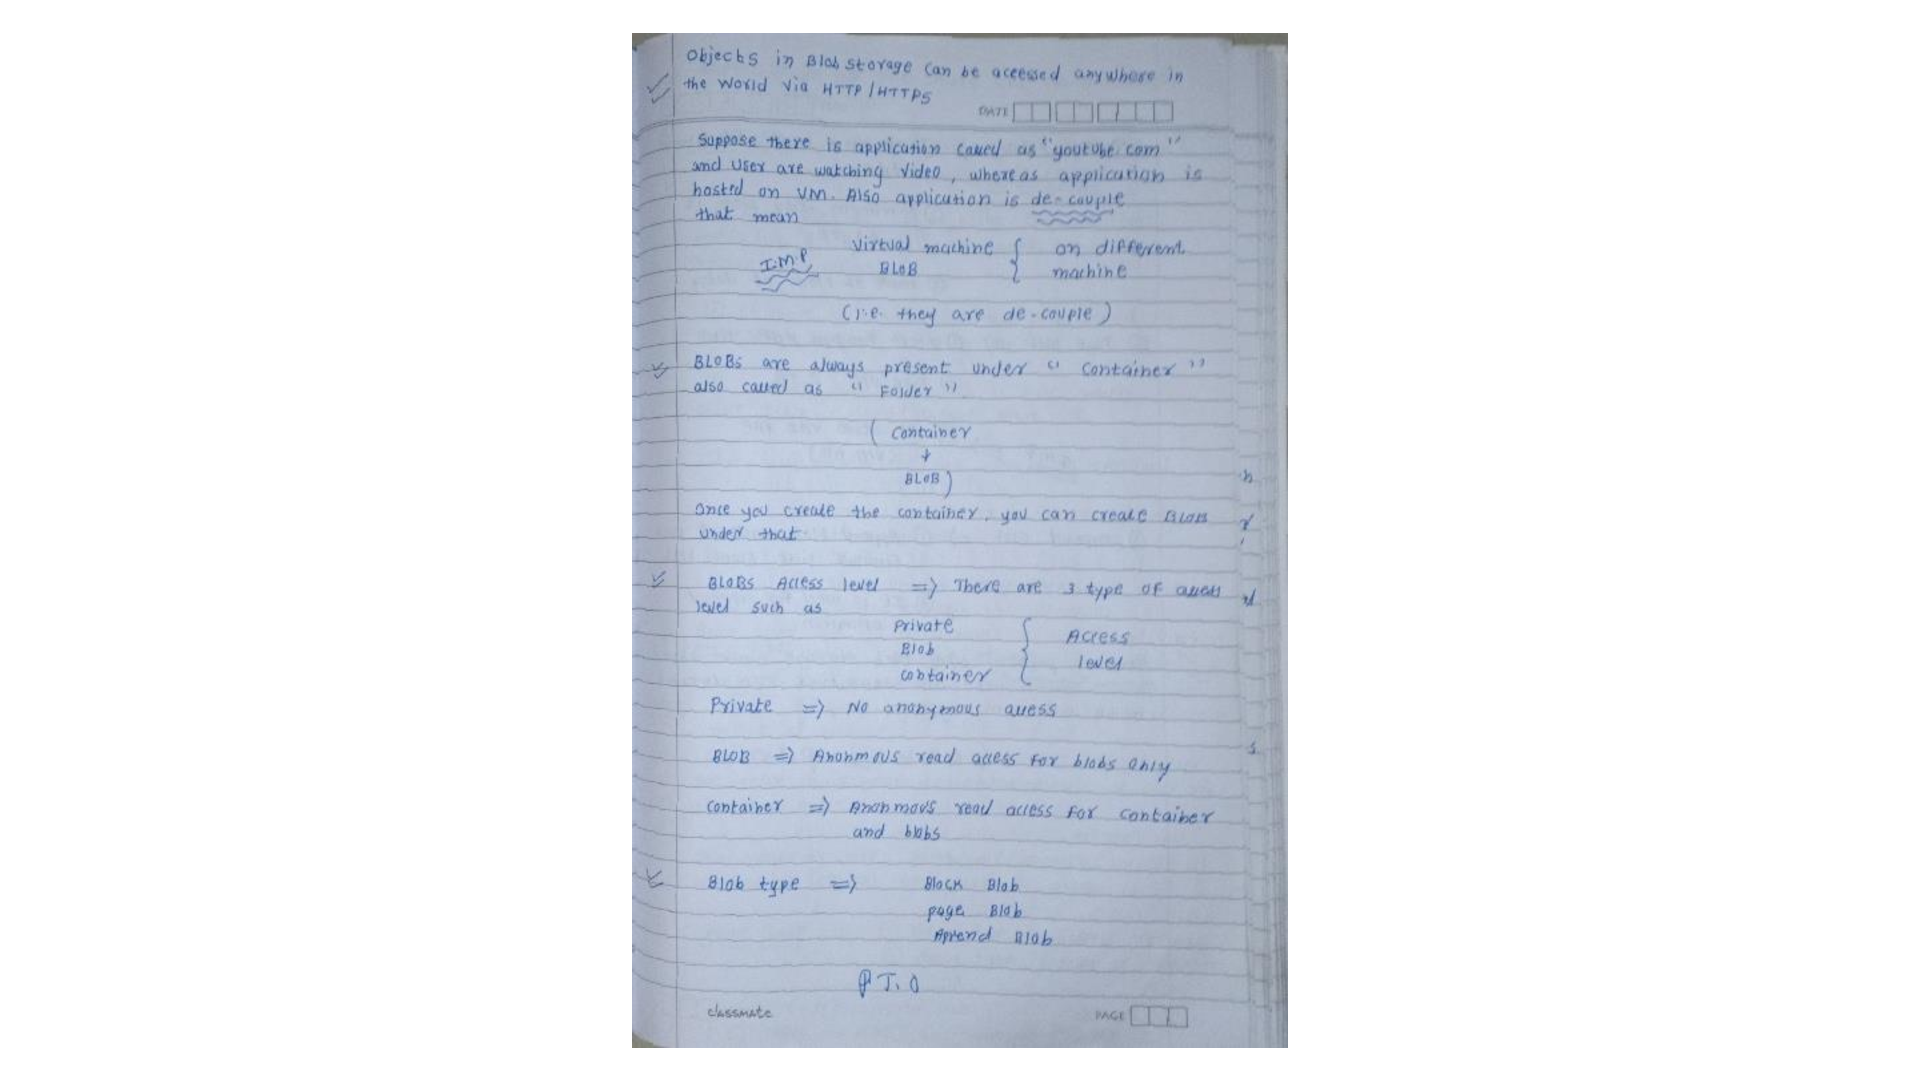 Objects in Blob storage can be accessed anywhere in
the World via HTTP/HTTPS
DATE
Suppose there is application called as "youtube.com"
and User are watching video, whereas application is
hosted on VM. Also application is de-couple
that mean
Virtual machine { on different
I.M.P BLOB machine
(i.e. they are de-couple)
BLOBs are always present under "container"
also called as "Folder"
(container
↓
BLOB)
Once you create the container, you can create BLOB
under that.
BLOBs Access level => There are 3 type of access
level such as
Private
Blob
container { Access
level
Private => No anonymous access
BLOB => Anonmous read access for blobs only
Container => Anonmous read access for container
and blobs
Blob type => Block Blob
page Blob
Append Blob
P T. O
classmate
PAGE